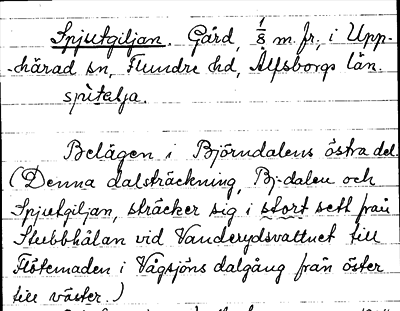 Spjutgiljan. Gård, 1/8 m. fr., i Upp-
-härad sn, Flundre hd, Älfsborgs län.
spìtelja.
Belägen i Björndalens östra del.
(Denna dalsträckning, Bj-dalen och
Spjutgiljan, sträcker sig i stort sett från
Stubbhålan vid Vanderydsvattnet till
Flötemaden i Vågsjöns dalgång från öster
till väster.)